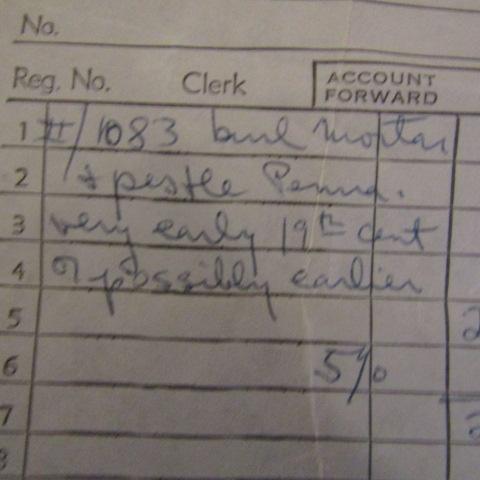 No.
Reg. No. Clerk ACCOUNT FORWARD
1 #/1083 burl mortar
2 + pestle Penna.
3 very early 19th cent
4 possibly earlier
5 2
6 5%
7
8